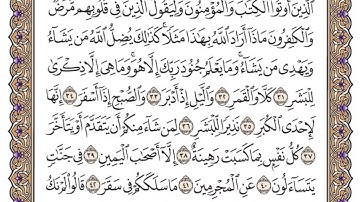 الَّذِينَ أُوتُوا الْكِتَٰبَ وَالْمُؤْمِنُونَ وَلِيَقُولَ الَّذِينَ فِي قُلُوبِهِم مَّرَضٌ
وَالْكَٰفِرُونَ مَاذَا أَرَادَ اللَّهُ بِهَٰذَا مَثَلًا كَذَٰلِكَ يُضِلُّ اللَّهُ مَن يَشَاءُ
وَيَهْدِي مَن يَشَاءُ وَمَا يَعْلَمُ جُنُودَ رَبِّكَ إِلَّا هُوَ وَمَا هِيَ إِلَّا ذِكْرَىٰ
لِلْبَشَرِ ٣١ كَلَّا وَالْقَمَرِ ٣٢ وَاللَّيْلِ إِذْ أَدْبَرَ ٣٣ وَالصُّبْحِ إِذَا أَسْفَرَ ٣٤ إِنَّهَا
لَإِحْدَى الْكُبَرِ ٣٥ نَذِيرًا لِّلْبَشَرِ ٣٦ لِمَن شَاءَ مِنكُمْ أَن يَتَقَدَّمَ أَوْ يَتَأَخَّرَ
٣٧ كُلُّ نَفْسٍ بِمَا كَسَبَتْ رَهِينَةٌ ٣٨ إِلَّا أَصْحَٰبَ الْيَمِينِ ٣٩ فِي جَنَّٰتٍ
يَتَسَاءَلُونَ ٤٠ عَنِ الْمُجْرِمِينَ ٤١ مَا سَلَكَكُمْ فِي سَقَرَ ٤٢ قَالُوا لَمْ نَكُ